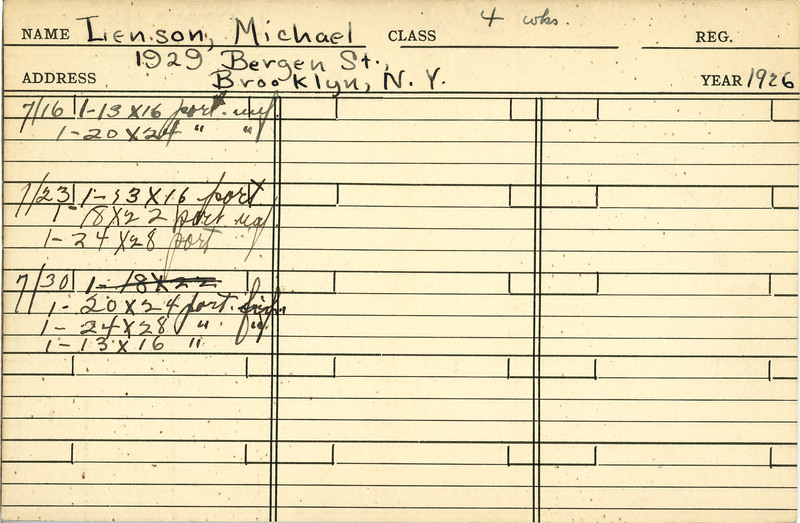 NAME Lenson, Michael CLASS 4 wks. REG.
1929 Bergen St.,
ADDRESS Brooklyn, N. Y. YEAR 1926
7/16 1-13 X 16 port.
1-20 X 24 " "
7/23 1-13 X 16 port
1- 18 X 22 port
1- 24 X 28 port
7/30 1- 18 X 22
1- 20 X 24 port.
1- 24 X 28 " "
1- 13 X 16 "